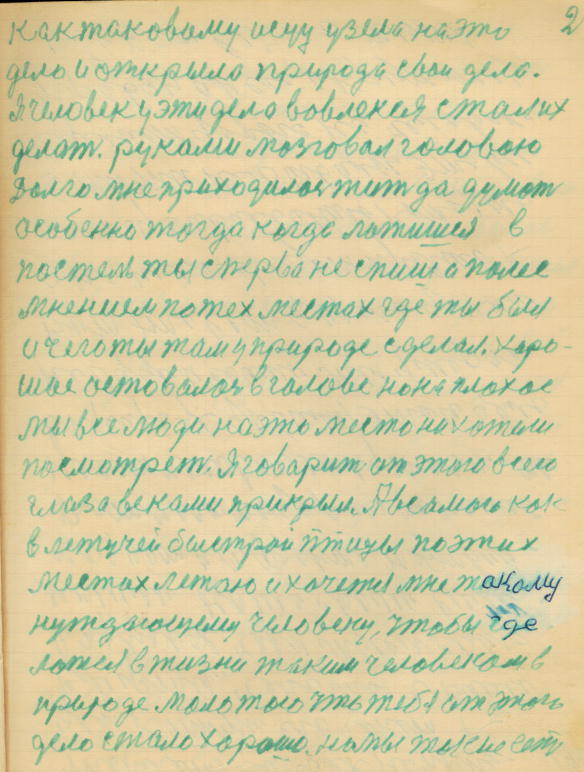 2
как таковому исцу узела на это
дело и открыла природа свои дела.
Я человек у эти дело вовлекся стал их
делат. руками мозговал головою
Долго мне приходилос жит да думат
особенно тогда когда ложишся в
постель ты сперва не спиш а полее
мнением по тех местах где ты был
и чего ты там у природе сделал. Хоро-
шое оставалос в голове но на плохое
мы все люди на это место ни хотели
посмотрет. Я говарит от этого всего
глаза веками прикрыл. А в самого как
в летучей быстрой птицы по этих
местах летаю и хочется мне такому
нуждающему человеку, чтобы где
в жизни таким человеком в
природе мало того что тебя от этого
дело стало хорошо. но мы